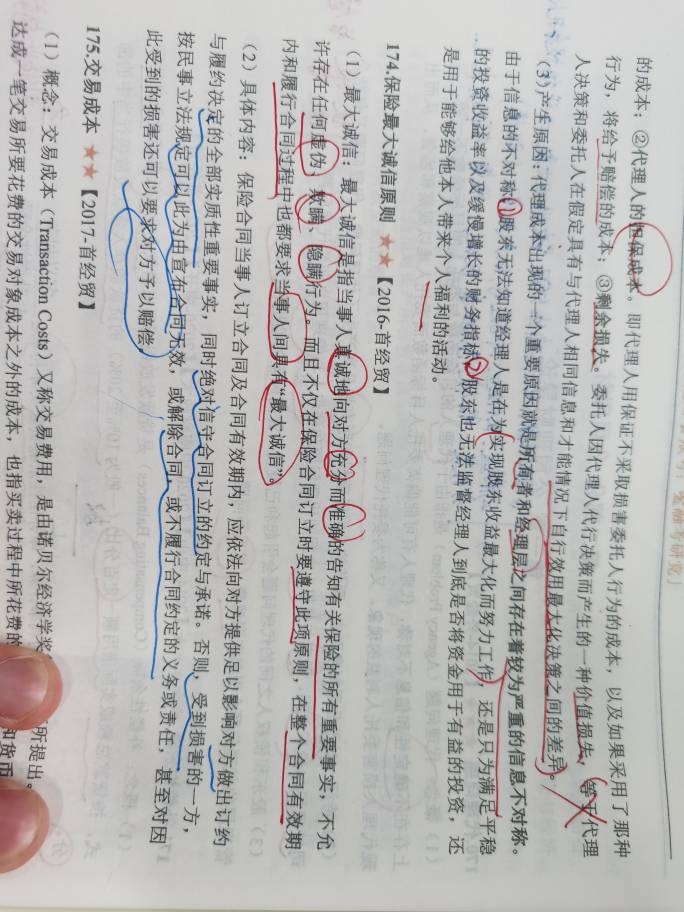 的成本；②代理人的担保成本。即代理人用保证不采取损害委托人行为的成本，以及如果采用了那种
行为，将给予赔偿的成本；③剩余损失。委托人因代理人代行决策而产生的一种价值损失，等于代理
人决策和委托人在假定具有与代理人相同信息和才能情况下自行效用最大化决策之间的差异。
（3）产生原因：代理成本出现的一个重要原因就是所有者和经理层之间存在着较为严重的信息不对称。
由于信息的不对称，股东无法知道经理人是在为实现股东收益最大化而努力工作，还是只为满足平稳
的投资收益率以及缓慢增长的财务指标；股东也无法监督经理人到底是否将资金用于有益的投资，还
是用于能够给他本人带来个人福利的活动。
174.保险最大诚信原则 ★★【2016-首经贸】
（1）最大诚信：最大诚信是指当事人真诚地向对方充分而准确的告知有关保险的所有重要事实，不允
许存在任何虚伪、欺瞒、隐瞒行为。而且不仅在保险合同订立时要遵守此项原则，在整个合同有效期
内和履行合同过程中也都要求当事人间具有“最大诚信”。
（2）具体内容：保险合同当事人订立合同及合同有效期内，应依法向对方提供足以影响对方做出订约
与履约决定的全部实质性重要事实，同时绝对信守合同订立的约定与承诺。否则，受到损害的一方，
按民事立法规定可以此为由宣布合同无效，或解除合同，或不履行合同约定的义务或责任，甚至对因
此受到的损害还可以要求对方予以赔偿。
175.交易成本 ★★【2017-首经贸】
（1）概念：交易成本（Transaction Costs）又称交易费用，是由诺贝尔经济学奖 所提出。
达成一笔交易所要花费的交易对象成本之外的成本，也指买卖过程中所花费的 和货币